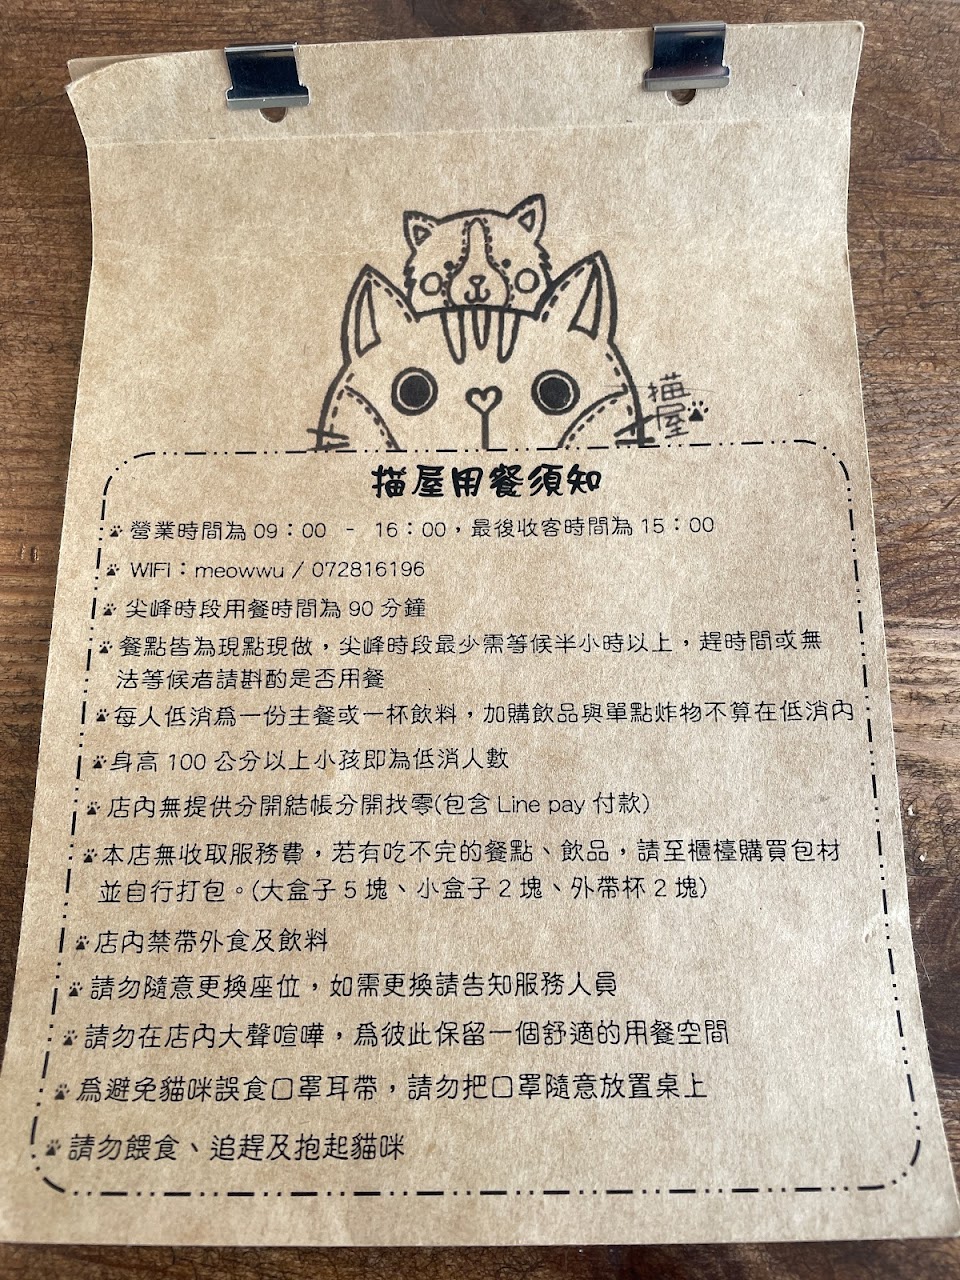 描屋
描屋用餐須知
營業時間為 09：00 - 16：00，最後收客時間為 15：00
WIFI：meowwu / 072816196
尖峰時段用餐時間為 90 分鐘
餐點皆為現點現做，尖峰時段最少需等候半小時以上，趕時間或無
法等候者請斟酌是否用餐
每人低消爲一份主餐或一杯飲料，加購飲品與單點炸物不算在低消內
身高 100 公分以上小孩即為低消人數
店內無提供分開結帳分開找零(包含 Line pay 付款)
本店無收取服務費，若有吃不完的餐點、飲品，請至櫃檯購買包材
並自行打包。(大盒子 5 塊、小盒子 2 塊、外帶杯 2 塊)
店內禁帶外食及飲料
請勿隨意更換座位，如需更換請告知服務人員
請勿在店內大聲喧嘩，爲彼此保留一個舒適的用餐空間
爲避免貓咪誤食口罩耳帶，請勿把口罩隨意放置桌上
請勿餵食、追趕及抱起貓咪